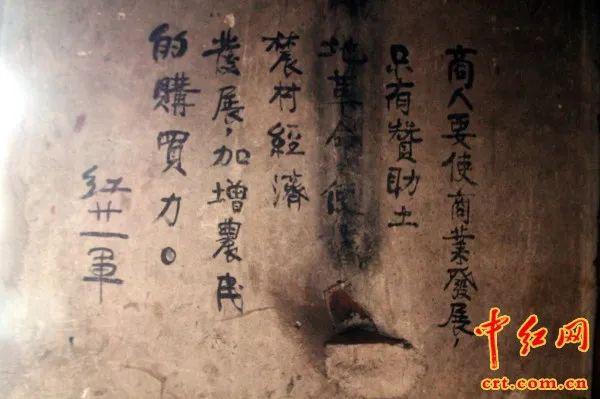 商人要使商業發展，
只有賛助土
地革命，使
農村經濟
發展，加增農民
的購買力。
红廿一軍
中红网
crt.com.cn